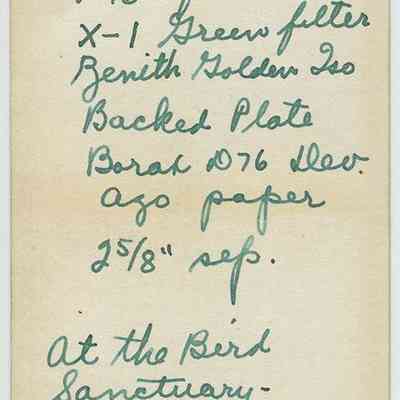 X-1 Green filter
Zenith Golden Iso
Backed Plate
Borax D76 Dev.
Azo paper
2 5/8" sep.
At the Bird
Sanctuary-